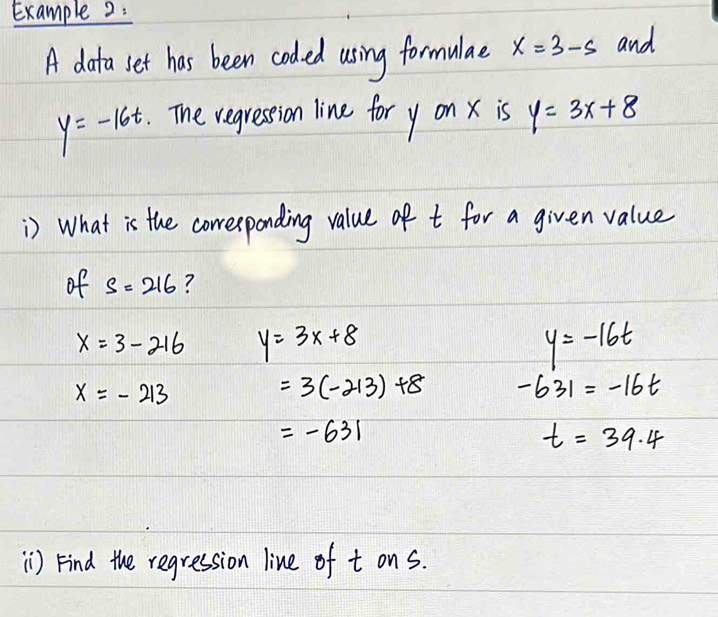 Example 2:
A data set has been coded using formulae x = 3 - s and
y = -16t. The regression line for y on x is y = 3x + 8
i) What is the corresponding value of t for a given value
of s = 216?
x = 3 - 216 y = 3x + 8 y = -16t
x = - 213 = 3(-213) + 8 -631 = -16t
= -631 t = 39.4
ii) Find the regression line of t on s.